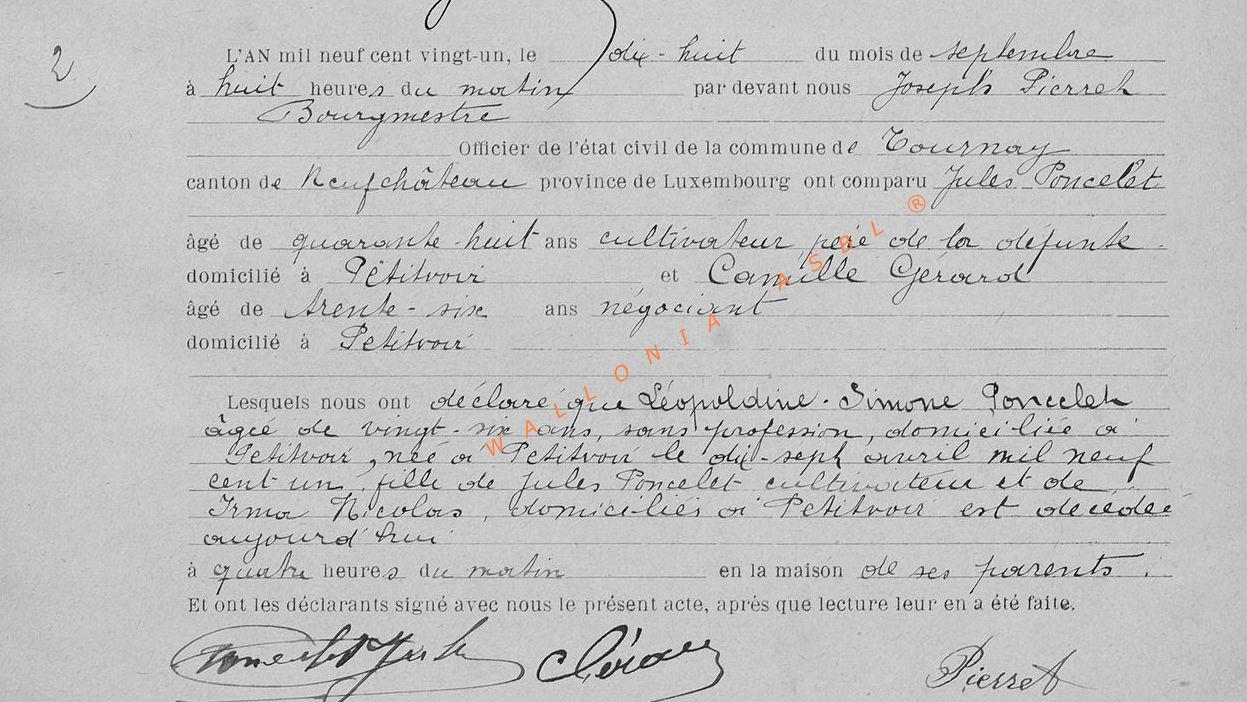 2
L'AN mil neuf cent vingt-un, le dix-huit du mois de septembre
à huit heures du matin par devant nous Joseph Pierret
Bourgmestre
Officier de l'état civil de la commune de Tournay
canton de Neufchâteau province de Luxembourg ont comparu Jules Poncelet
âgé de quarante-huit ans cultivateur père de la défunte
domicilié à Petitvoir et Camille Gérard
âgé de trente-six ans négociant
domicilié à Petitvoir
Lesquels nous ont déclaré que Léopoldine-Simone Poncelet
âgée de vingt-six ans, sans profession, domiciliée à
Petitvoir, née à Petitvoir le dix-sept avril mil neuf
cent un, fille de Jules Poncelet cultivateur et de
Irma Nicolas, domiciliés à Petitvoir est décédée
aujourd'hui
à quatre heures du matin en la maison de ses parents.
Et ont les déclarants signé avec nous le présent acte, après que lecture leur en a été faite.
Pierret
WALLONIA ASBL ®